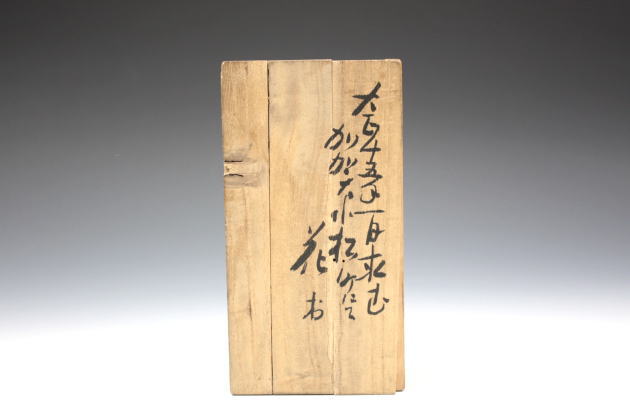 大正十五年一月求む
加賀小松にて
花